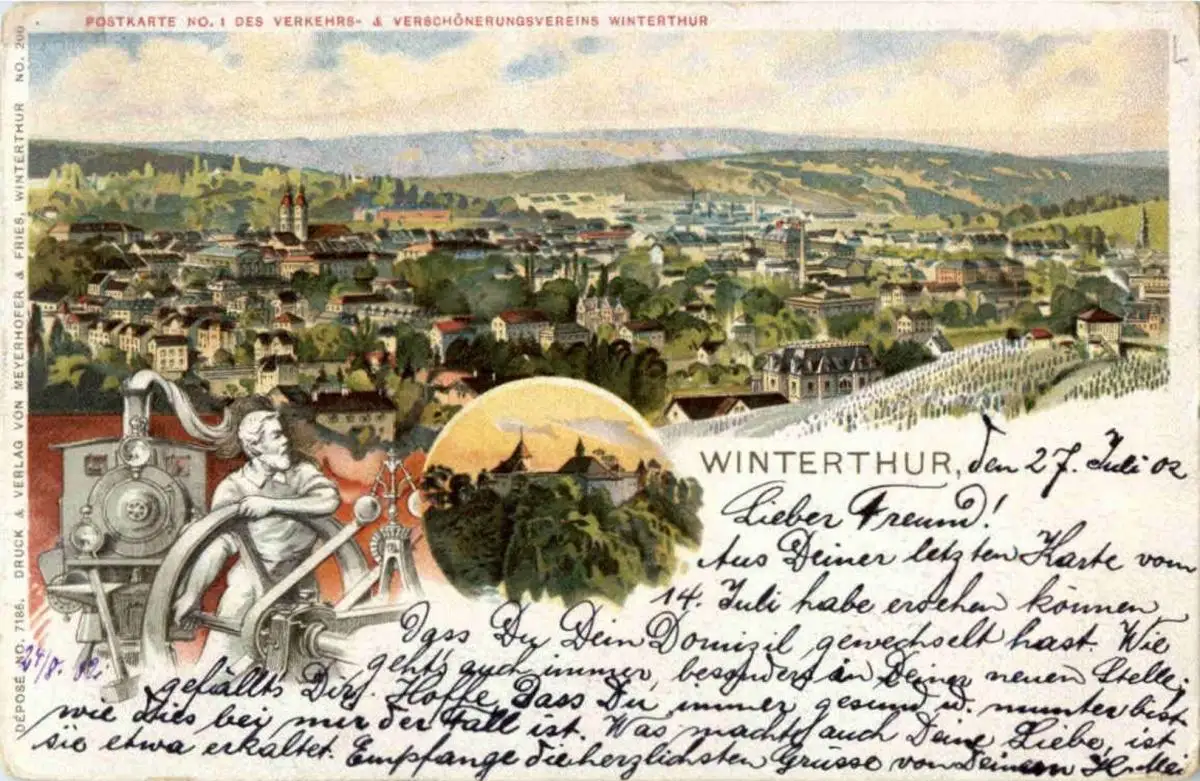 POSTKARTE NO. 1 DES VERKEHRS- & VERSCHÖNERUNGSVEREINS WINTERTHUR
DÉPOSÉ NO. 7186. DRUCK & VERLAG VON MEYERHOFER & FRIES, WINTERTHUR NO. 200
WINTERTHUR, den 27. Juli 02
Lieber Freund!
Aus Deiner letzten Karte vom
14. Juli habe ersehen können
dass Du Dein Domizil gewechselt hast. Wie
geht's auch immer, besonders in Deiner neuen Stelle;
gefällts Dir. Hoffe, dass Du immer gesund u. munter bist
wie dies bei mir der Fall ist. Was macht auch Deine Liebe, ist
sie etwa erkaltet. Empfange die herzlichsten Grüsse von Deinem